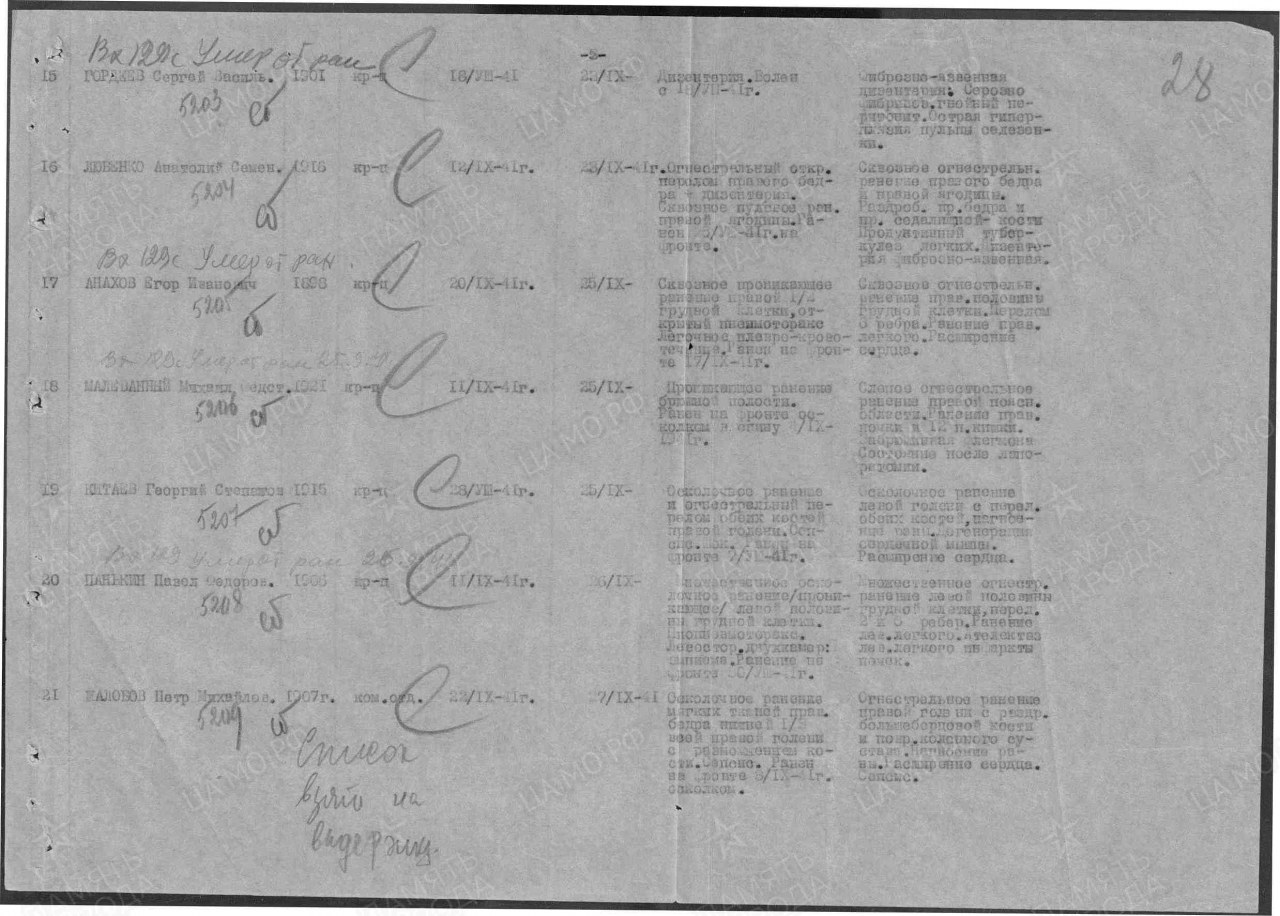 Вх 129с Умер от ран
-3-
28
15 ГОРДЕЕВ Сергей Василь. 1901 кр-ц 18/УП-41 23/IX- Дизентерия. Болен Фиброзно-язвенная
с 18/УП-41г. дизентерия. Серозно
5203 сб фибриноз. гнойный пе-
ритонит. Острая гипер-
плазия пульпы селезен-
ки.
16 ЛЮБЕНКО Анатолий Семен. 1916 кр-ц 12/IX-41г. 23/IX-41г. Огнестрельный откр. Сквозное огнестрельн.
перелом правого бед- ранение правого бедра
5204 ра - дизентерия. и правой ягодицы.
Сквозное пулевое ран. Раздроб. пр. бедра и
сб правой ягодицы. Ра- пр. седалищной кости
нен на Продуктивный тубер-
фронте. кулез легких.
рия фиброзно-язвенная.
Вх 129с Умер от ран.
17 АНАХОВ Егор Иванович 1898 кр-ц 20/IX-41г. 25/IX- Сквозное проникающее Сквозное огнестрельн.
ранение правой 1/2 ранение прав. половины
5205 сб грудной клетки, от- грудной клетки. Перелом
крытый пневмоторакс ребра. Ранение прав.
легочное плевро-крово- легкого. Расширение
течение. Ранен на фрон- сердца.
те 17/IX-41г.
Вх 129с Умер от ран 25.9.41
18 МАЛЕВАННЫЙ Михаил 1921 кр-ц 11/IX-41г. 25/IX- Проникающее ранение Слепое огнестрельное
брюшной полости. ранение правой поясн.
5206 сб Ранен на фронте ос- области. Ранение прав.
колком в спину почки и 12 п. кишки.
Забрюшинная флегмона
Состояние после лапо-
ротомии.
19 КИТАЕВ Георгий Степанов 1916 кр-ц 28/УП-41г. 25/IX- Осколочное ранение Осколочное ранение
и огнестрельный пе- левой голени с перел.
5207 сб релом обеих костей обеих костей, нагное-
правой голени. ние раны. Дегенерация
Ранен на сердечной мышцы.
фронте Расширение сердца.
Вх 129 Умер от ран
20 ПАНЬКИН Павел Федоров. 1906 кр-ц 11/IX-41г. 26/IX- Множественное оско- Множественное огнестр.
лочное ранение/прони- ранение левой половины
5208 сб кающее/ левой полови- грудной клетки, перел.
ны грудной клетки. 2 и 3 ребер. Ранение
Пиопневмоторакс. лев. легкого. Ателектаз
лев. легкого инфаркты
эмпиема. Ранение на почек.
фронте
21 ЖАЛОБОВ Петр Михайлов. 1907г. ком.отд. 22/IX-41г. 27/IX-41 Осколочное ранение Огнестрельное ранение
мягких тканей прав. правой голени с раздр.
5209 сб бедра нижней 1/3 большеберцовой кости
всей правой голени и повр. коленного су-
с размозжением ко- става. Нагноение ра-
сти. Сепсис. Ранен ны. Расширение сердца.
на фронте 8/IX-41г. Сепсис.
осколком.
Список
взят на
выдержку